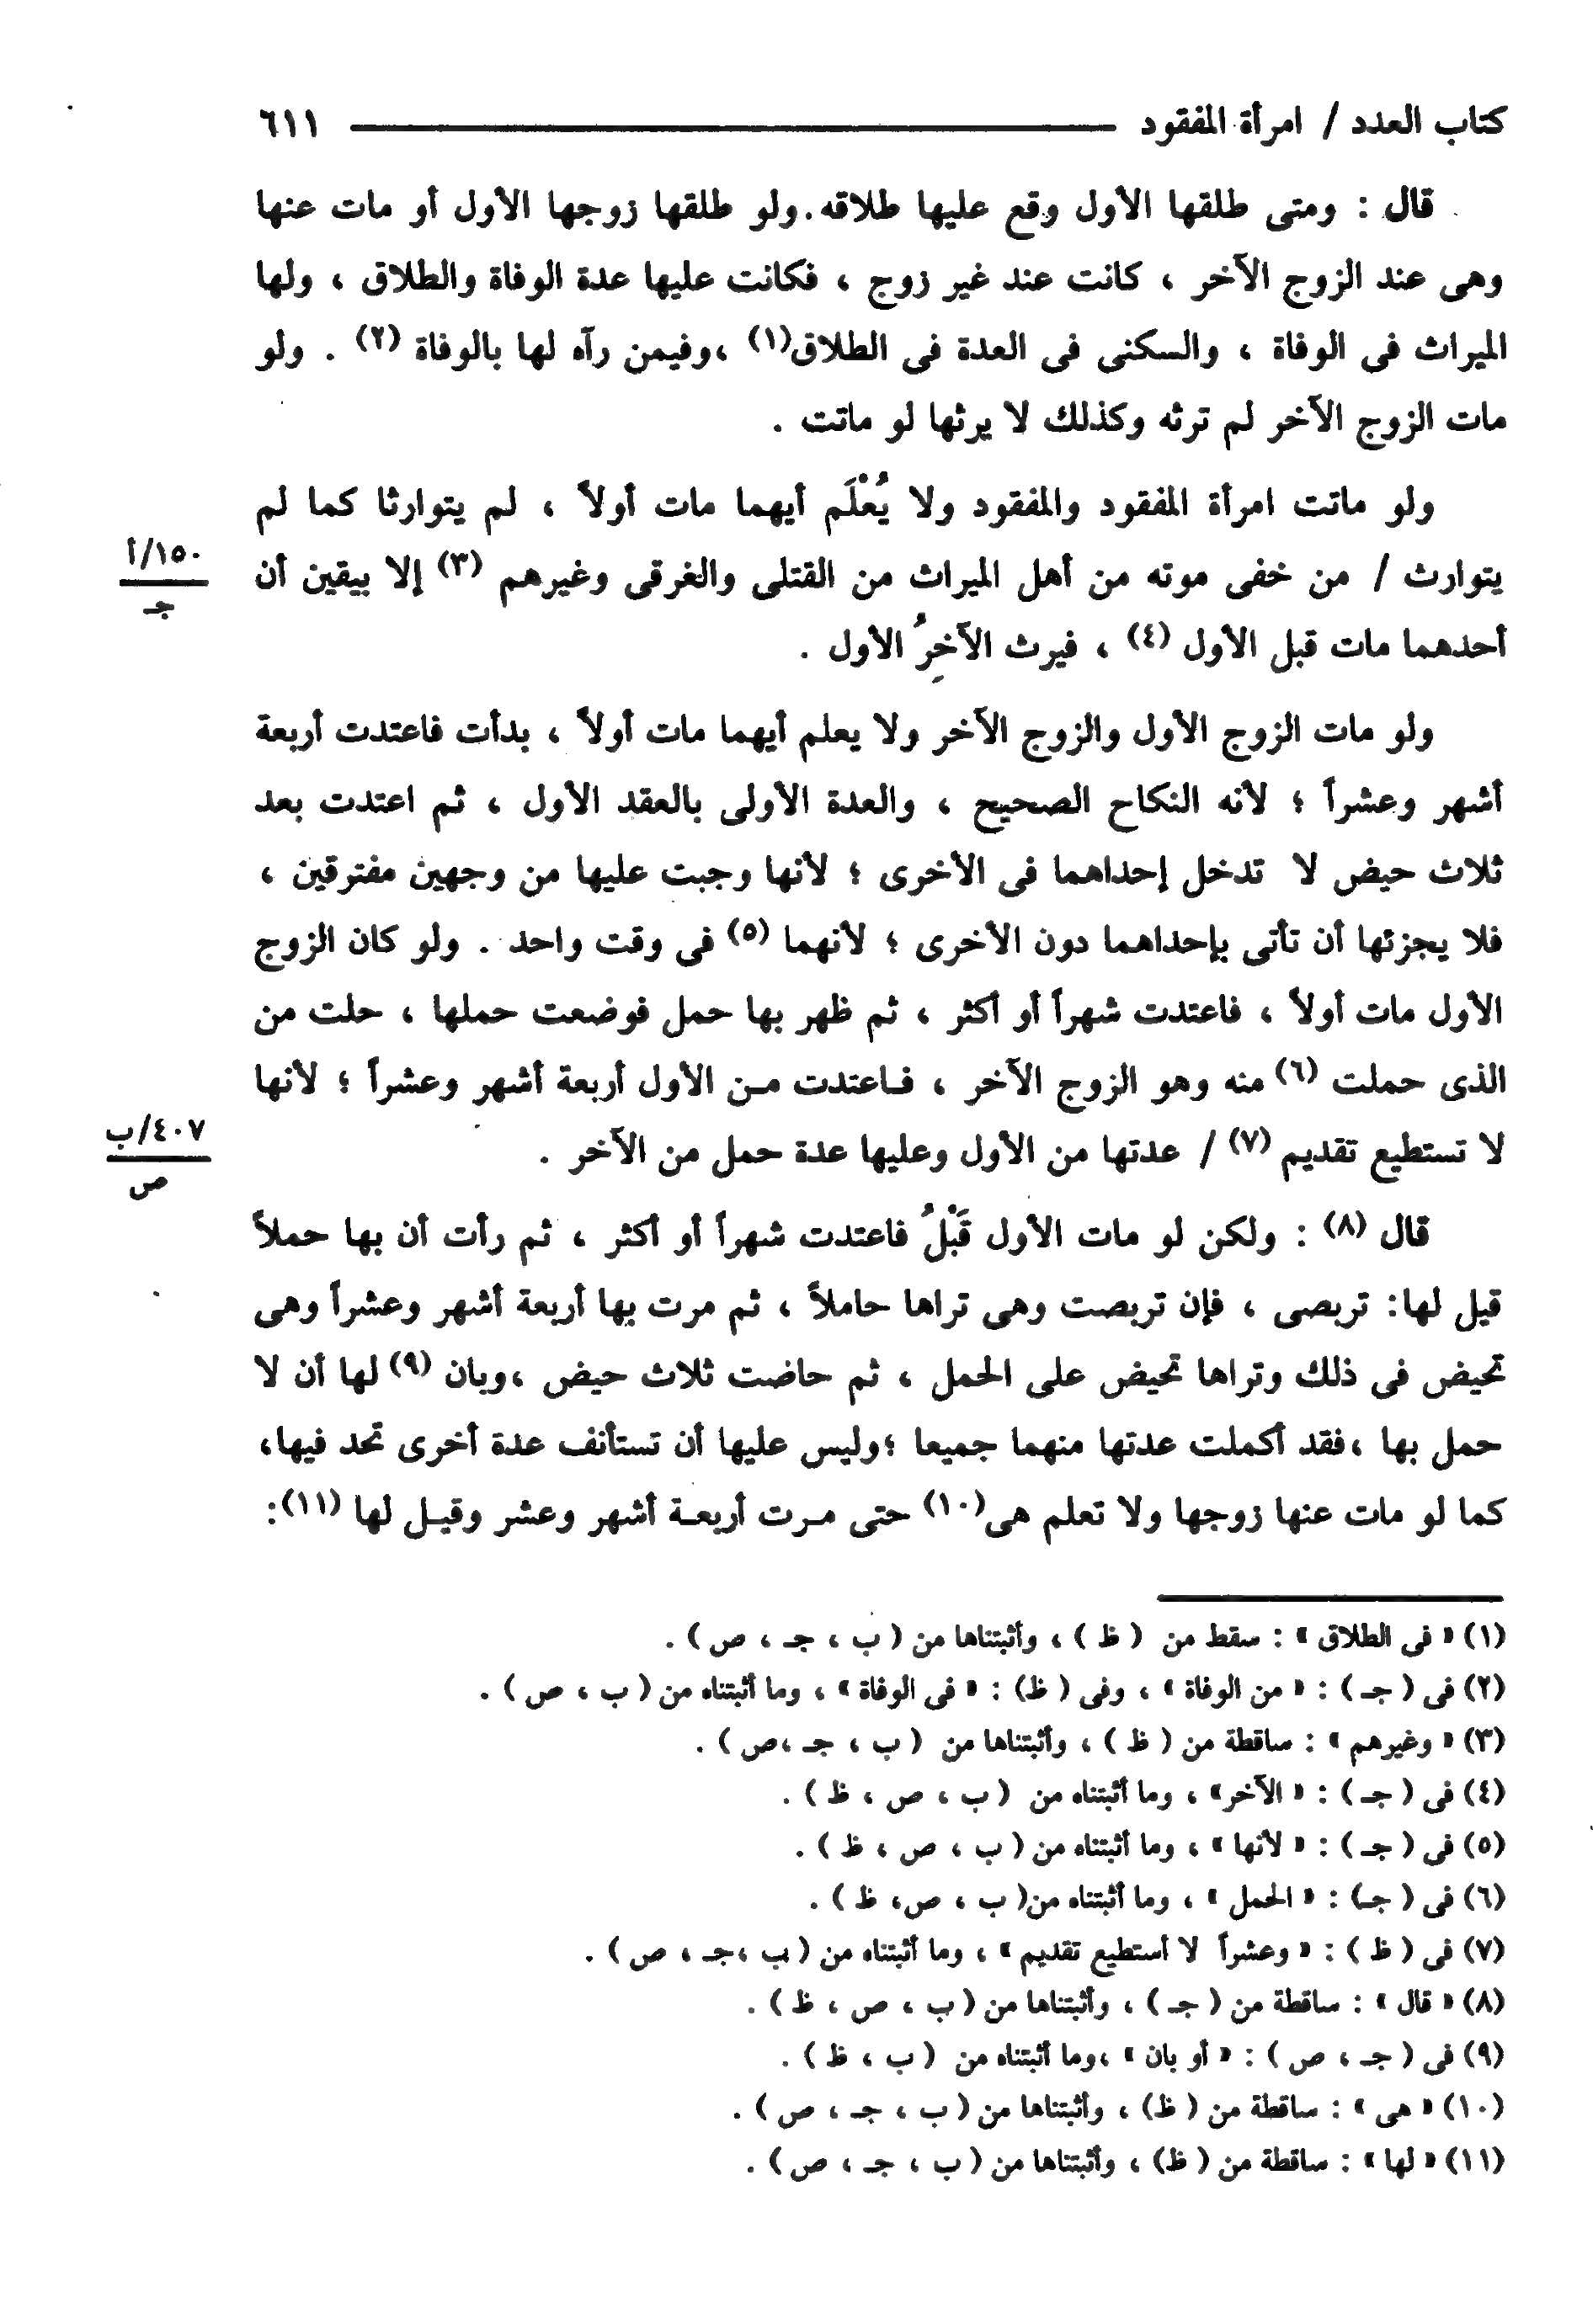 كتاب العدد / امرأة المفقود ــــــــــ ٦١١
قال : ومتى طلقها الأول وقع عليها طلاقه . ولو طلقها زوجها الأول أو مات عنها
وهى عند الزوج الآخر ، كانت عند غير زوج ، فكانت عليها عدة الوفاة والطلاق ، ولها
الميراث فى الوفاة ، والسكنى فى العدة فى الطلاق(١) ،وفيمن رآه لها بالوفاة (٢) . ولو
مات الزوج الآخر لم ترثه وكذلك لا يرثها لو ماتت .
ولو ماتت امرأة المفقود والمفقود ولا يُعْلَم أيهما مات أولاً ، لم يتوارثا كما لم
يتوارث / من خفى موته من أهل الميراث من القتلى والغرقى وغيرهم (٣) إلا بيقين أن
١٥٠/أ
جـ
أحدهما مات قبل الأول (٤) ، فيرث الآخِرُ الأول .
ولو مات الزوج الأول والزوج الآخر ولا يعلم أيهما مات أولاً ، بدأت فاعتدت أربعة
أشهر وعشراً ؛ لأنه النكاح الصحيح ، والعدة الأولى بالعقد الأول ، ثم اعتدت بعد
ثلاث حيض لا تدخل إحداهما فى الأخرى ؛ لأنها وجبت عليها من وجهين مفترقين ،
فلا يجزئها أن تأتى بإحداهما دون الأخرى ؛ لأنهما (٥) فى وقت واحد . ولو كان الزوج
الأول مات أولاً ، فاعتدت شهراً أو أكثر ، ثم ظهر بها حمل فوضعت حملها ، حلت من
الذى حملت (٦) منه وهو الزوج الآخر ، فـاعتدت مـن الأول أربعة أشهر وعشراً ؛ لأنها
لا تستطيع تقديم (٧) / عدتها من الأول وعليها عدة حمل من الآخر .
٤٠٧/ب
ص
قال (٨) : ولكن لو مات الأول قَبْلُ فاعتدت شهراً أو أكثر ، ثم رأت أن بها حملاً
قيل لها: تربصى ، فإن تربصت وهى تراها حاملاً ، ثم مرت بها أربعة أشهر وعشراً وهى
تحيض فى ذلك وتراها تحيض على الحمل ، ثم حاضت ثلاث حيض ،وبان (٩) لها أن لا
حمل بها ،فقد أكملت عدتها منهما جميعا ؛وليس عليها أن تستأنف عدة أخرى تحد فيها،
كما لو مات عنها زوجها ولا تعلم هى(١٠) حتى مـرت أربعـة أشهر وعشر وقيـل لها (١١):
(١) « فى الطلاق » : سقط من ( ظ ) ، وأثبتناها من ( ب ، جـ ، ص ) .
(٢) فى ( جـ ) : « من الوفاة » ، وفى ( ظ) : « فى الوفاة » ، وما أثبتناه من ( ب ، ص ) .
(٣) « وغيرهم » : ساقطة من ( ظ ) ، وأثبتناها من ( ب ، جـ ،ص ) .
(٤) فى ( جـ ) : « الآخر» ، وما أثبتناه من ( ب ، ص ، ظ ) .
(٥) فى ( جـ ) : « لأنها » ، وما أثبتناه من ( ب ، ص ، ظ ) .
(٦) فى ( جـ) : « الحمل » ، وما أثبتناه من( ب ، ص، ظ ) .
(٧) فى ( ظ ) : « وعشراً لا أستطيع تقديم » ، وما أثبتناه من ( ب ،جـ ، ص ) .
(٨) « قال » : ساقطة من ( جـ ) ، وأثبتناها من ( ب ، ص ، ظ ) .
(٩) فى ( جـ ، ص ) : « أو بان » ،وما أثبتناه من ( ب ، ظ ) .
(١٠) « هى » : ساقطة من ( ظ) ، وأثبتناها من ( ب ، جـ ، ص ) .
(١١) « لها » : ساقطة من ( ظ) ، وأثبتناها من ( ب ، جـ ، ص ) .